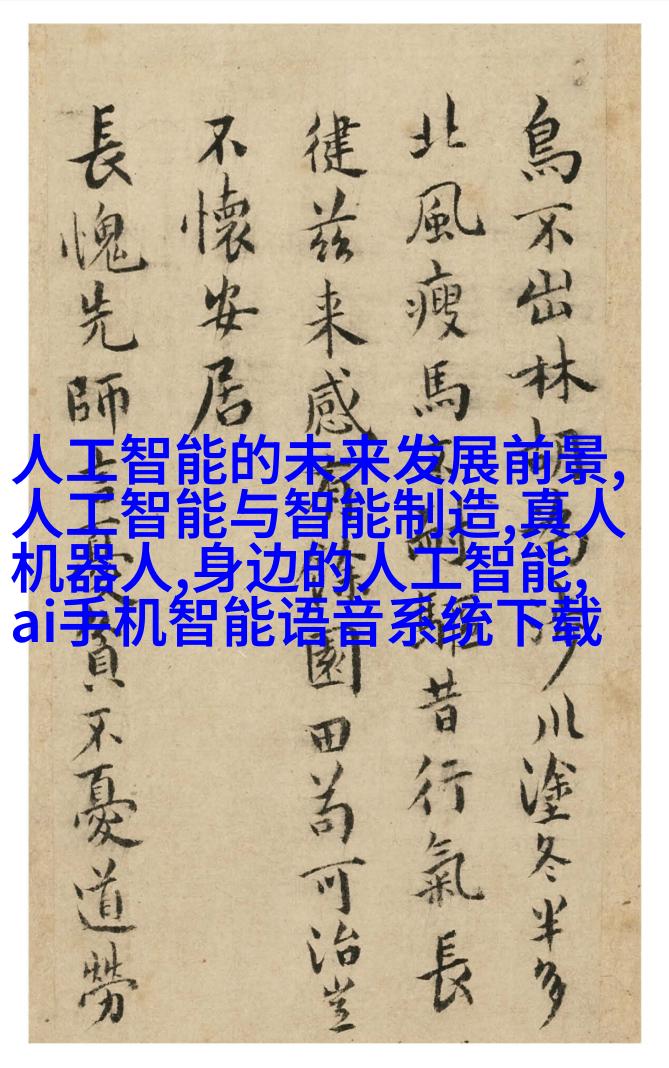 鳥不出林胡為乎川塗冬半多
北風瘦馬不耐驅昔行氣長
健茲来感餘園田苟可治豈
不懷安居
長愧先師言憂貧不憂道勞
人工智能的未来发展前景,
人工智能与智能制造,真人
机器人,身边的人工智能,
ai手机智能语音系统下载